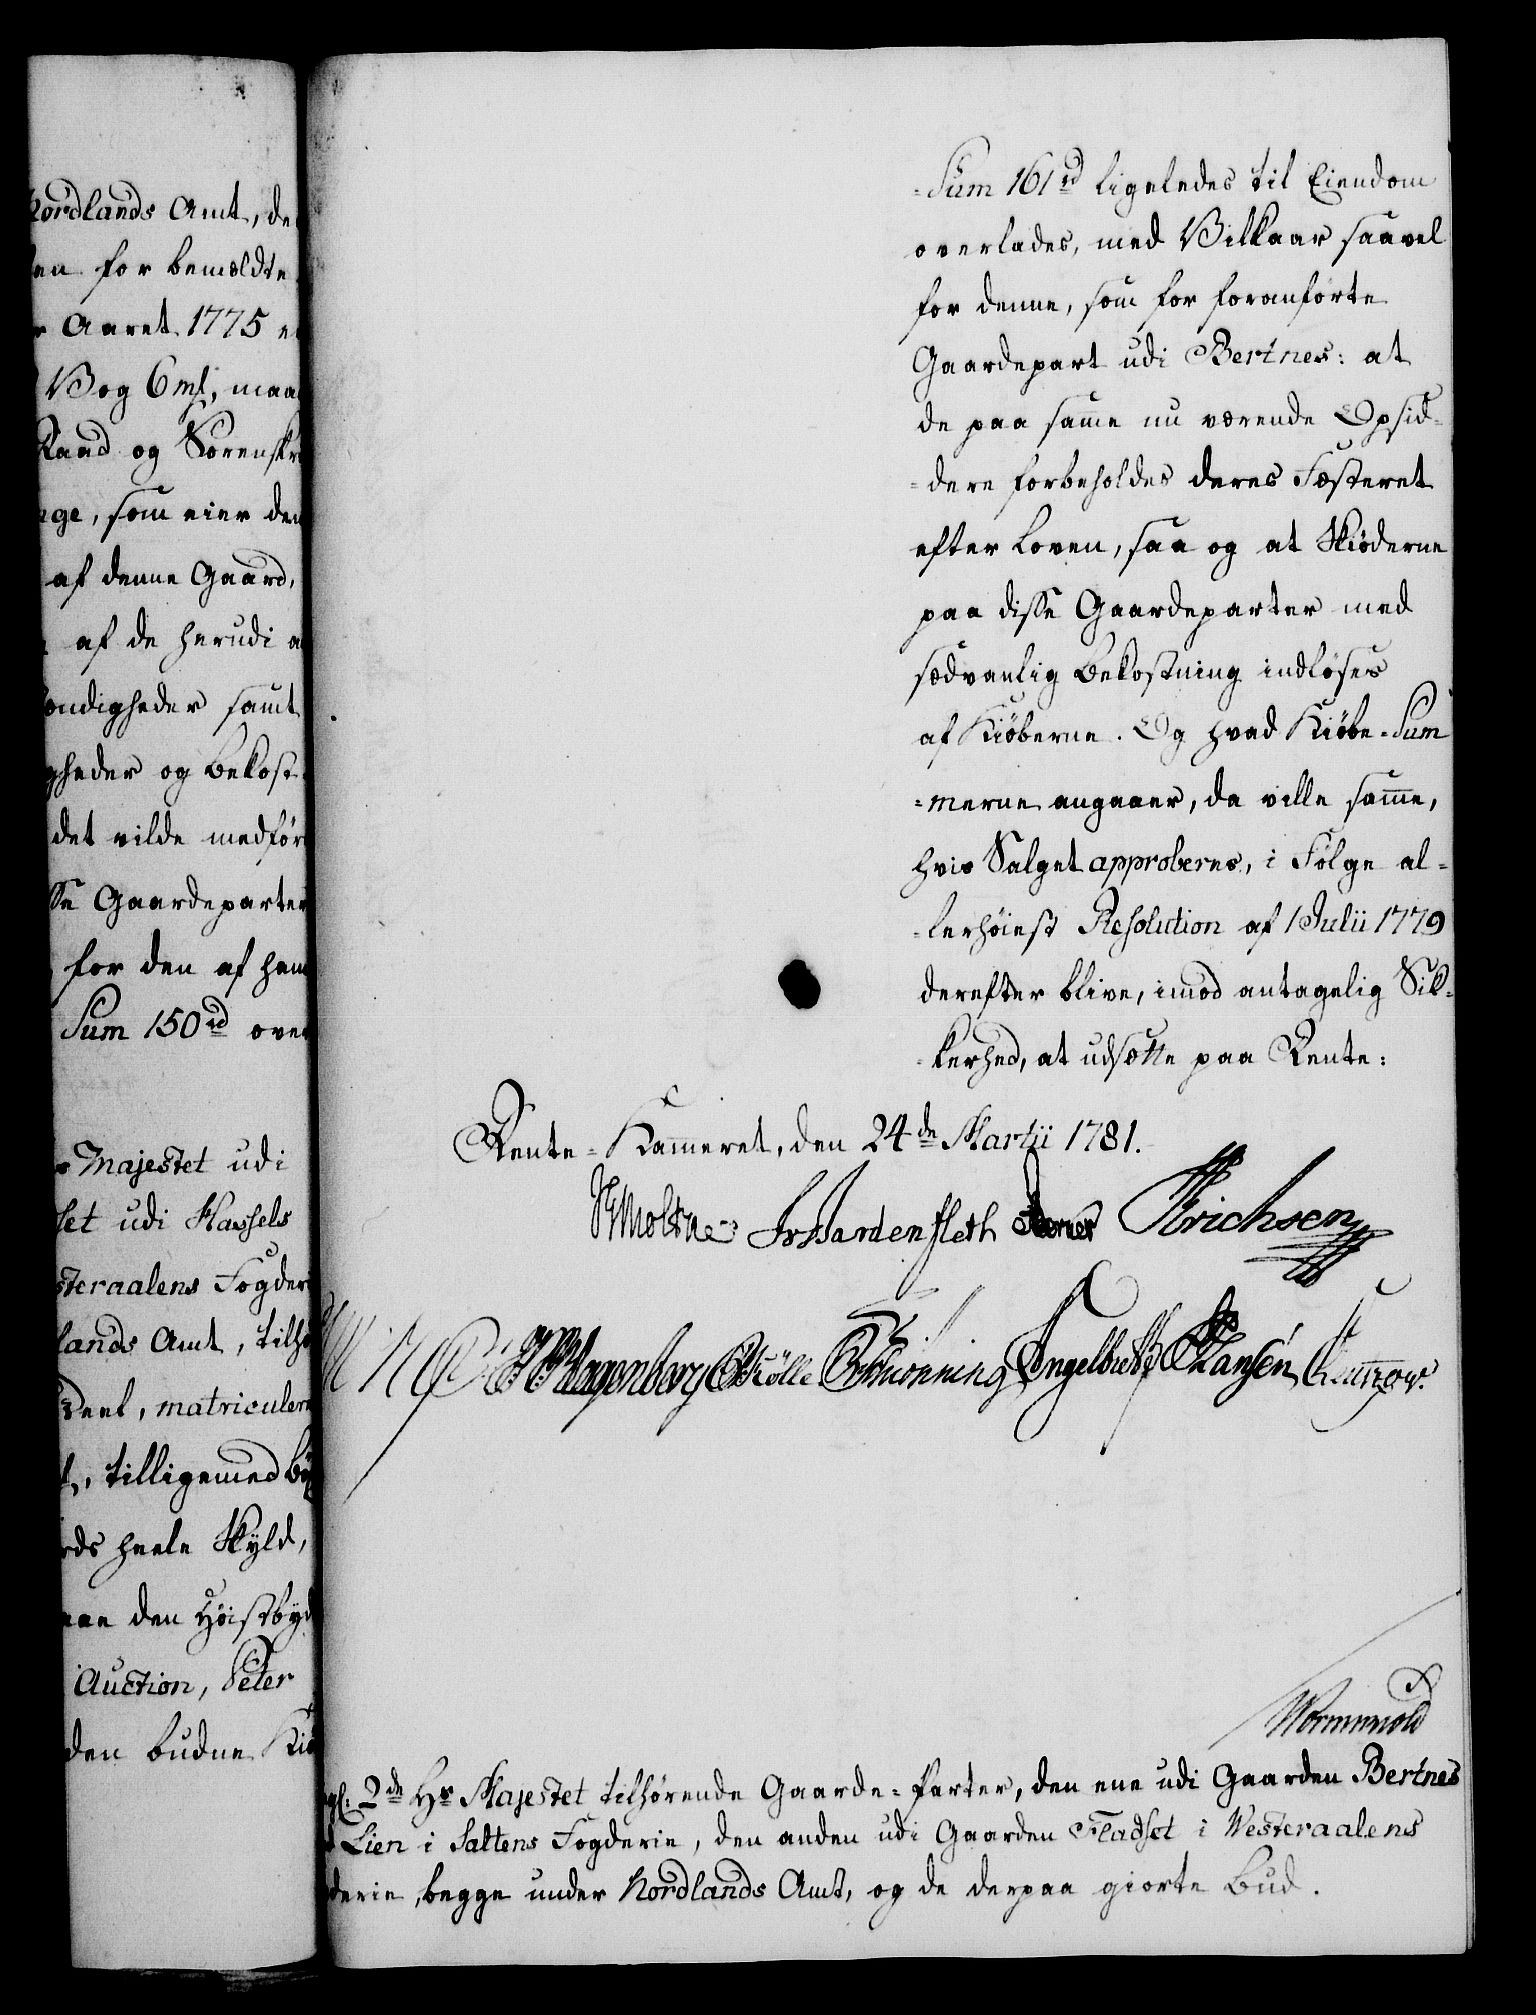 Nordlands Amt, de
en for bemeldte
Aaret 1775 e
Bog 6 ml, maa
Raad og Sorenskr
ge, som eier den
af denne Gaard,
af de herudi a
ændigheder samt
gheder og Bekost
det vilde medför
sse Gaardeparter
for den af ham
Sum 150 rd over
Majestet udi
set udi Hassels
steraalens Fogderi
lands Amt, tilhö
Deel, matriculere
tilligemed
rds heele Skyld,
den Höistbyd
Auction, Peter
den budne Kiö
-Sum 161 rd ligeledes til Eiendom
overlades, med Vilkaar saavel
for denne, som for foranförte
Gaardepart udi Bertnes: at
de paa samme nu værende Opsid-
-dere forbeholdes deres Fæsteret
efter Loven, saa og at Skiöderne
paa disse Gaardeparter med
sædvanlig Bekostning indlöses
af Kiöberne. Og hvad Kiöbe-Sum
-merne angaaer, da ville samme,
hvis Salget approberes, i Fölge al-
-lerhöiest Resolution af 1 Julii 1779
derefter blive, imod antagelig Sik-
-kerhed, at udsætte paa Rente:
Rente-Kammeret, den 24de Martii 1781.
Moltke JvBardenfleth Erichsen
Wagenberg Schiönning Engelbreth Hansen
Wormskiold
2de Hs Majestet tilhörende Gaarde-Parter, den ene udi Gaarden Bertnes
Lien i Saltens Fogderie, den anden udi Gaarden Fladset i Westeraalens
derie, begge under Nordlands Amt, og de derpaa giorte Bud.